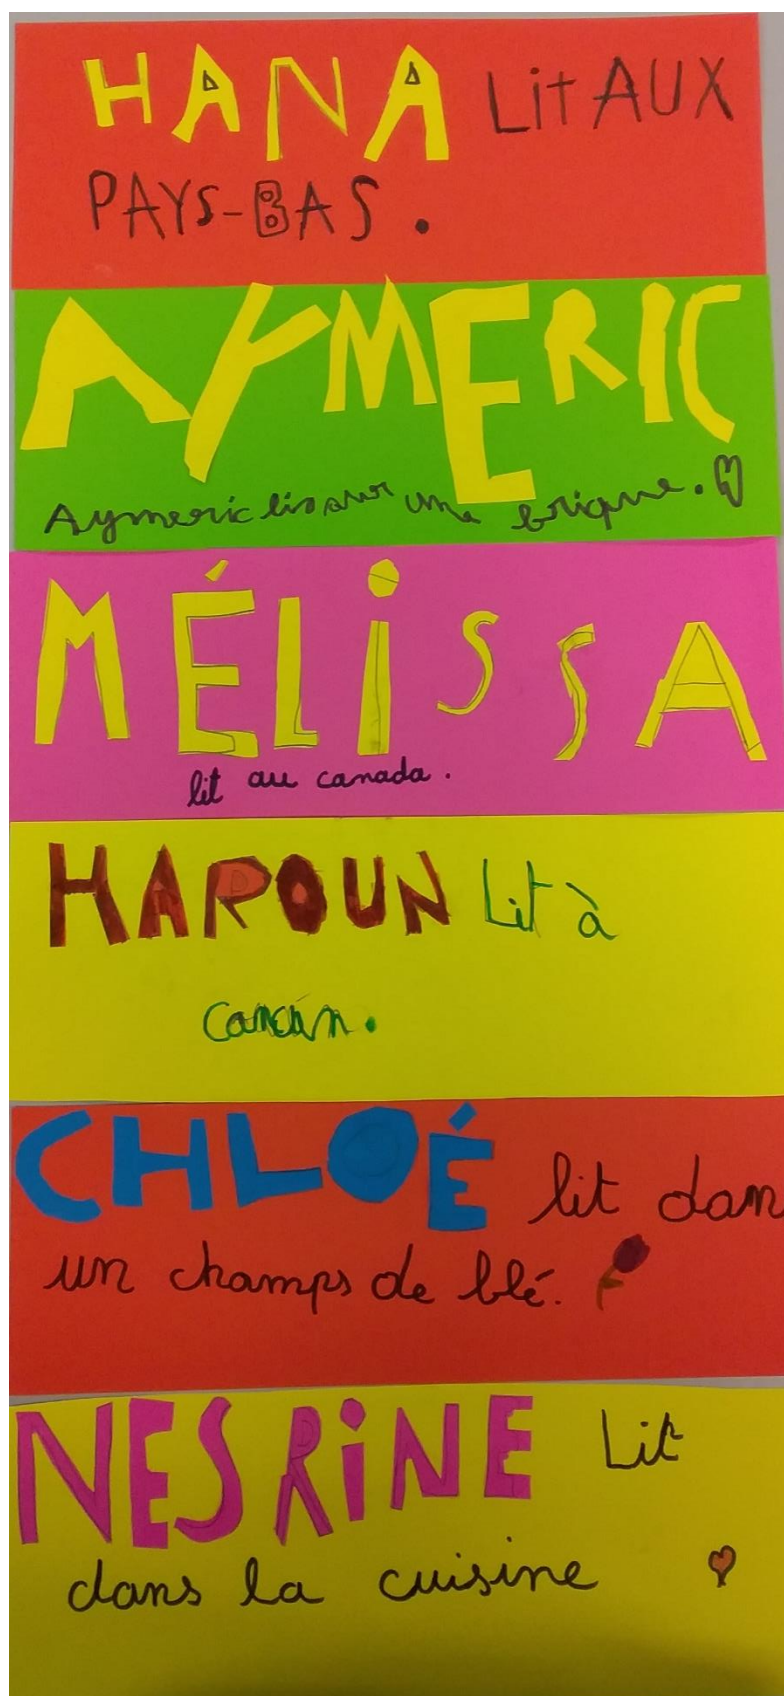 HANA Lit AUX
PAYS-BAS.
AYMERIC
Aymeric lis sur une brique.
MÉLiSSA
lit au canada.
HAROUN Lit à
cancún.
CHLOÉ lit dan
un champs de blé.
NESRiNE Lit
dans la cuisine